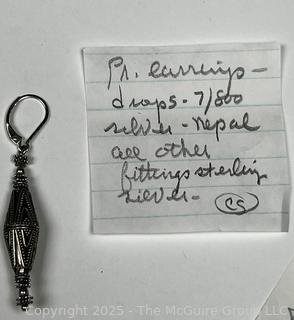 Pr. earrings -
drops - 7/800
silver - Nepal
all other
fittings sterling
silver -
CG
Copyright 2025 - The McGuire Group LLC